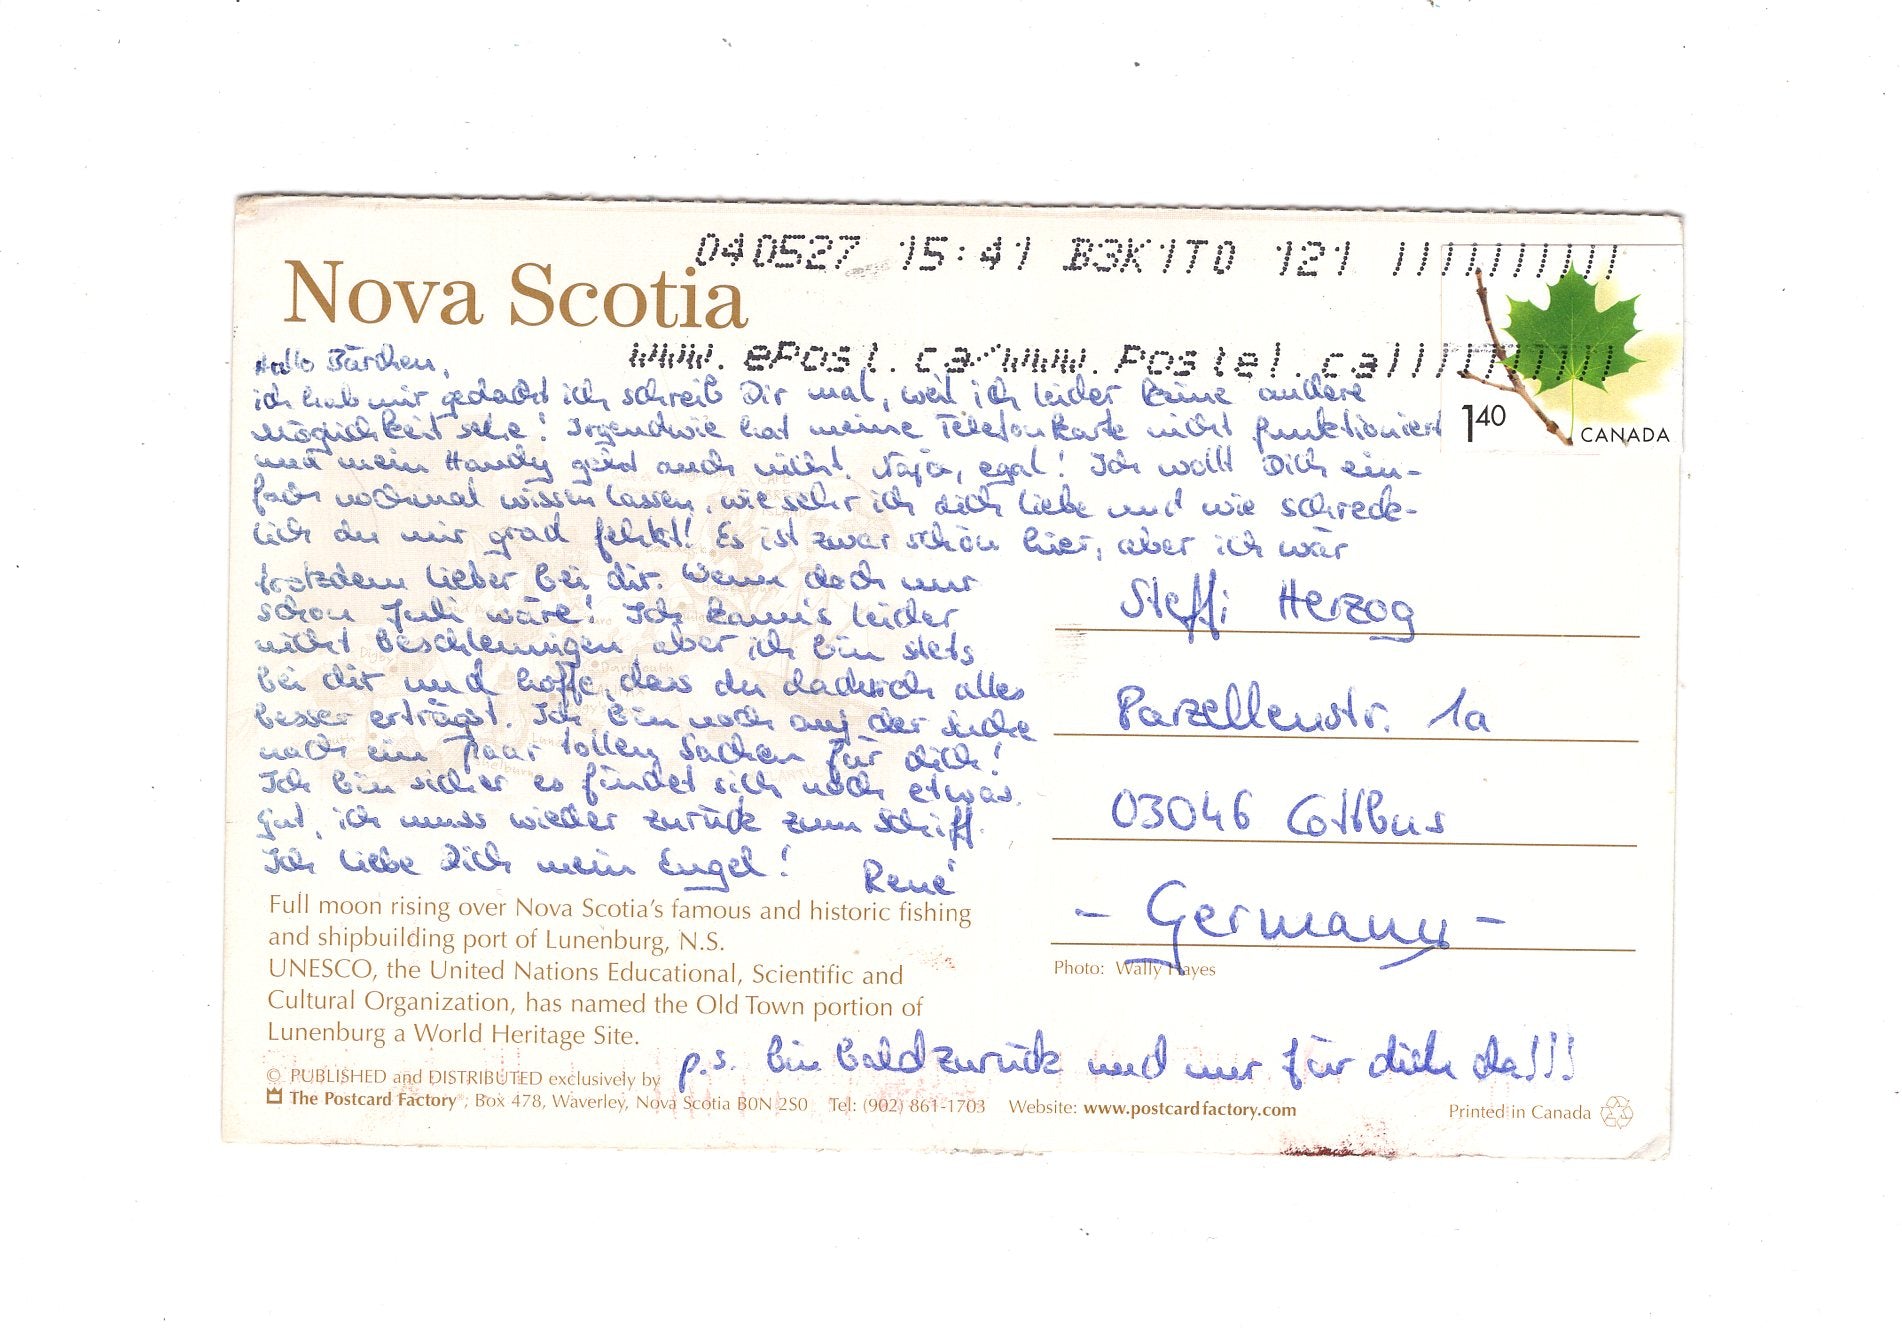 040527 15:41 B3K1T0 121
Nova Scotia
www.ePost.ca/www.Postel.ca
1.40
CANADA
Hallo Bärchen,
ich hab mir gedacht ich schreib Dir mal, weil ich leider keine andere
Möglichkeit sehe! Irgendwie hat meine Telefonkarte nicht funktioniert
und mein Handy geht auch nicht! Naja, egal! Ich wollt Dich ein-
fach nochmal wissen lassen, wie sehr ich dich liebe und wie schreck-
lich du mir grad fehlst! Es ist zwar schön hier, aber ich wär
trotzdem lieber bei dir. Wenn doch nur
schon Juli wäre! Ich kann's leider
nicht beschleunigen, aber ich bin stets
bei dir und hoffe, dass du dadurch alles
besser erträgst. Ich bin noch auf der Suche
nach ein paar tollen Sachen für dich!
Ich bin sicher es findet sich noch etwas.
Gut, ich muss wieder zurück zum Schiff.
Ich liebe Dich mein Engel! René
Steffi Herzog
Parzellenstr. 1a
03046 Cottbus
- Germany -
Photo: Wally Hayes
Full moon rising over Nova Scotia's famous and historic fishing
and shipbuilding port of Lunenburg, N.S.
UNESCO, the United Nations Educational, Scientific and
Cultural Organization, has named the Old Town portion of
Lunenburg a World Heritage Site.
p.s. bin bald zurück und nur für dich da!!!
© PUBLISHED and DISTRIBUTED exclusively by
The Postcard Factory®, Box 478, Waverley, Nova Scotia B0N 2S0 Tel: (902) 861-1703 Website: www.postcardfactory.com Printed in Canada